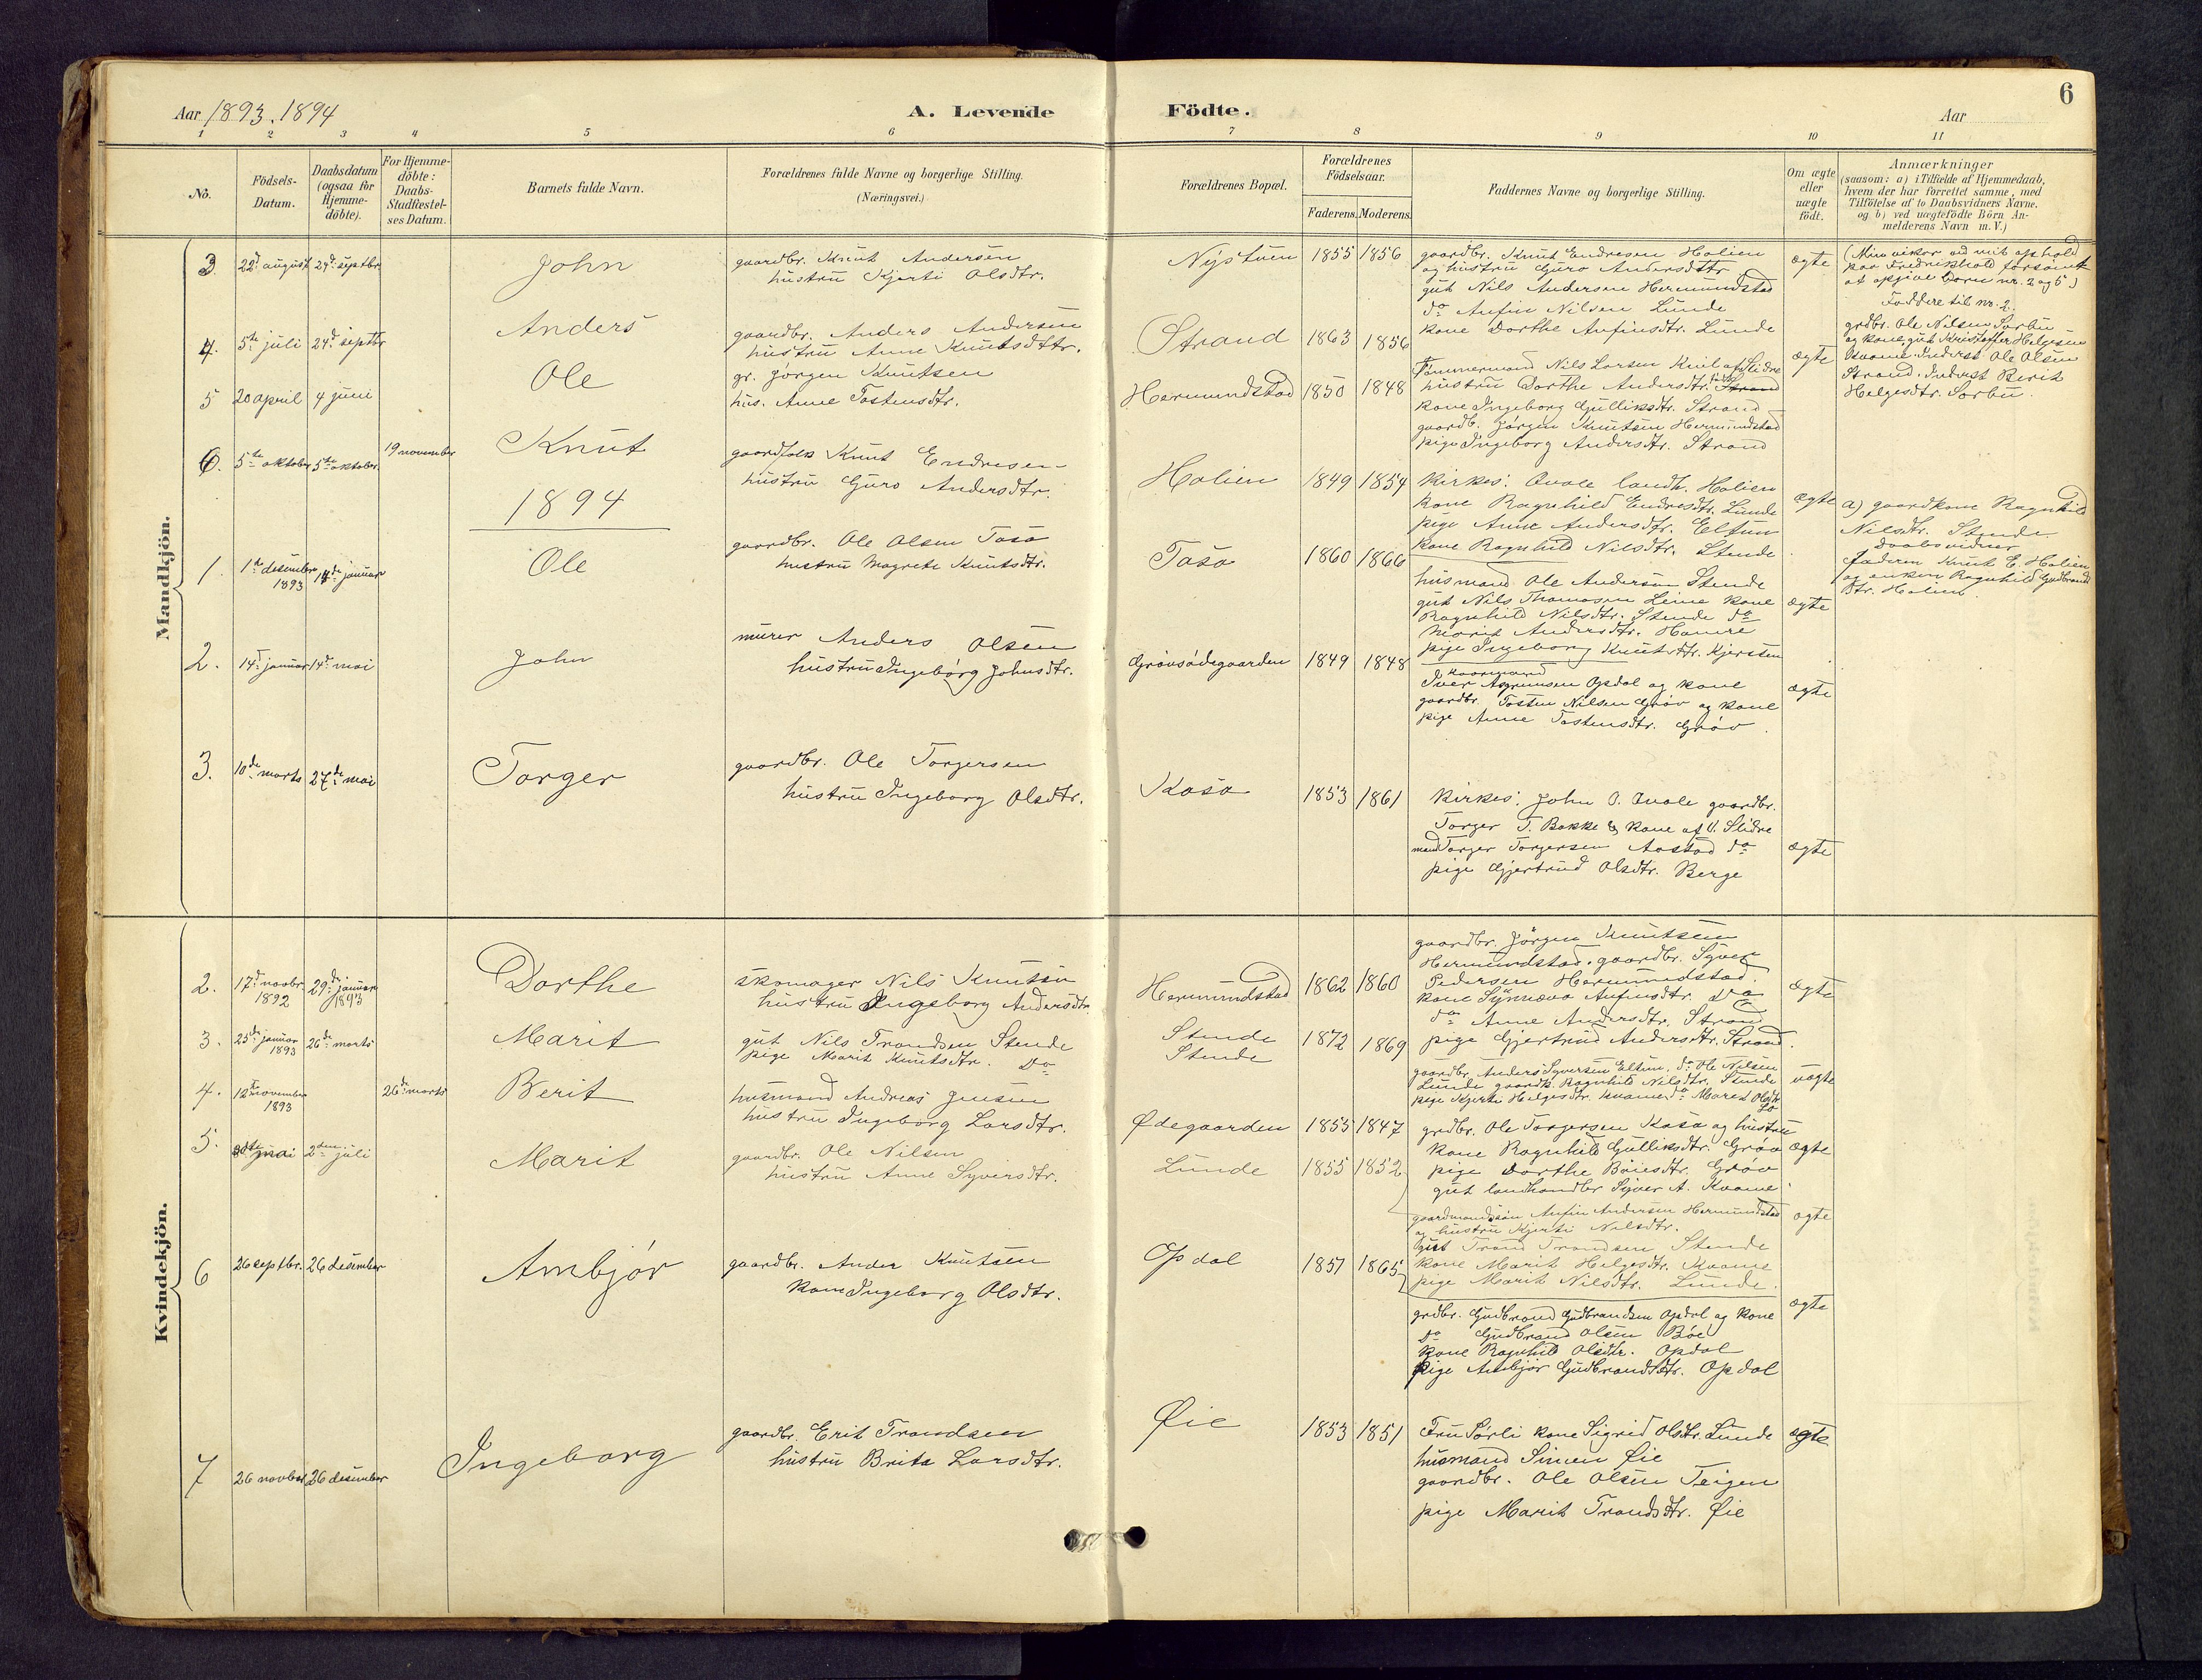 Aar 1893. 1894
A. Levende
Födte.
Aar
6
1
2
3
4
5
6
7
8
9
10
11
No.
Födsels-
Datum.
Daabsdatum
(ogsaa for
Hjemme-
döbte).
For Hjemme-
döbte:
Daabs-
Stadfæstel-
ses Datum.
Barnets fulde Navn.
Forældrenes fulde Navne og borgerlige Stilling.
(Næringsvei.)
Forældrenes Bopæl.
Forældrenes
Födselsaar.
Faderens.
Moderens.
Faddernes Navne og borgerlige Stilling.
Om ægte
eller
uægte
födt.
Anmærkninger
(saasom: a) i Tilfælde af Hjemmedaab,
hvem der har forrettet samme, med
Tilföielse af to Daabsvidners Navne.
og b) ved uægtefödte Börn An-
melderens Navn m.V.)
Mandkjön.
3 22d august 24d septbr.
John
gaardbr. Knut Andersen
hustru Kjersti Olsdtr.
Nystuen 1855 1856
gaardbr. Knut Endresen Holien
og hustru Guro Andersdtr.
gut Nils Andersen Hermundstad
do Anfin Nilsen Lunde
kone Dorthe Anfinsdtr. Lunde
ægte
(Min vikar ved mit ophold
paa Fredrikshald forsömt
at opgive barn nr. 2 og 5)
Faddere til nr. 2.
grdbr. Ole Nilsen Sorbu
og kone, gut Kristoffer Helgesen
Kvame. Inderst Ole Olsen
Strand. Inderst Berit
Helgesdtr. Sorbu.
4. 5te juli 24d septbr
Anders
gaardbr. Anders Andersen
hustru Anne Knutsdtr.
Strand 1863 1856
Tømmermand Nils Larsen Kvil af Slidre
hustru Dorthe Andersdtr. Strand
kone Ingeborg Gulliksdtr. Strand
gaardb. Jørgen Knutsen Hermundstad
pige Ingeborg Andersdtr. Strand
ægte
5 20 april 4 juni
Ole
gr. Jørgen Knutsen
hus. Anne Tostensdtr.
Hermundstad 1850 1848
6. 5te oktober 5te oktober 19 november
Knut
gaardfolk Knut Endresen
hustru Guro Andersdtr.
Holien 1849 1854
Kirkes: Qvale landh. Holien
kone Ragnhild Endresdtr. Lunde
pige Anne Andersdtr. Eltun
kone Ragnhild Nilsdtr. Stende
ægte
a) gaardkone Ragnhild
Nilsdtr. Stende
Daabsvidner
faderen Knut E. Holien
og enken Ragnhild Gudbrands
dtr. Holien.
1894
1. 1te desember
1893 14de januar
Ole
gaardbr. Ole Olsen Taso
hustru Magrete Knutsdtr.
Taso 1860 1866
husmand Ole Andersen Stende
gut Nils Thomasen Leine kone
Ragnhild Nilsdtr. Stende do
Marit Andersdtr. Hamre
pige Ingeborg Knutsdtr. Kjersten
ægte
2. 14d januar 14d mai
John
murer Anders Olsen
hustru Ingeborg Johnsdtr.
Grøvsødegaarden 1849 1848
kaarmand
Iver Asgrimsen Opdal og kone
gaardbr. Tosten Nilsen Grøv og kone
pige Anne Tostensdtr. Grøv.
ægte
3. 10de marts 27de mai
Torger
gaardbr. Ole Torgersen
hustru Ingeborg Olsdtr.
Kaso 1853 1861
Kirkes: John O. Qvale gaardbr.
Torger T. Bakke & kone af V. Slidre
mand Torger Torgersen Aastad do
pige Gjertrud Olsdtr. Berge
ægte
Kvindekjön.
2. 17d novbr.
1892 29de januar
1893
Dorthe
skomager Nils Knutsen
hustru Ingeborg Andersdtr.
Hermundstad 1862 1860
gaardbr. Jörgen Knutsen
Hermundstad. gaardbr. Syver
Pedersen Hermundstad
kone Synnøva Anfinsdtr. do
do Anne Andersdtr. Strand
pige Gjertrud Andersdtr. Strand.
ægte
3. 25de januar
1893 26de marts
Marit
gut Nils Trondsen Stende
pige Marit Knutsdtr. do
Stende
Stende 1872 1869
gaardbr. Anders Syversen Eltun, do Ole Nilsen
Lunde gaardk. Ragnhild Nilsdtr. Stende
pige Kjersti Helgesdtr. Kvame do Marit Olsdtr.
do
uægte
4. 12te november
1893 26de marts
Berit
husmand Andreas Jensen
hustru Ingeborg Larsdtr.
Ødegaarden 1853 1847
grdbr. Ole Torgersen Kasa og hustru
kone Ragnhild Gulliksdtr. Grøv
pige Dorthe Boiesdtr. Grøv
gut landhandler Syver A. Kvame
ægte
5. mai 2den juli
Marit
gaardbr. Ole Nilsen
hustru Anne Syversdtr.
Lunde 1855 1852
gaardmandssøn Anfin Andersen Hermundstad
og hustru Kjersti Nilsdtr.
gut Trond Trondsen Stende
kone Marit Helgesdtr. Kvame
pige Marit Nilsdtr. Lunde.
ægte
6 26 septbr. 26 desember
Ambjør
gaardbr. Anders Knutsen
kone Ingeborg Olsdtr.
Opdal 1857 1865
grdbr. Gudbrand Gudbrandsen Opdal og kone
do Gudbrand Olsen Böe
kone Ragnhild Olsdtr. Opdal
pige Ambjør Gudbrandsdtr. Opdal
ægte
7 26 novber 26 desember
Ingeborg
gaardbr. Erik Trondsen
hustru Brita Larsdtr.
Øie 1853 1851
Fru Sørli kone Sigrid Olsdtr. Lunde
husmand Simen Øie
gaardbr. Ole Olsen Teigen
pige Marit Trondsdtr. Øie
ægte